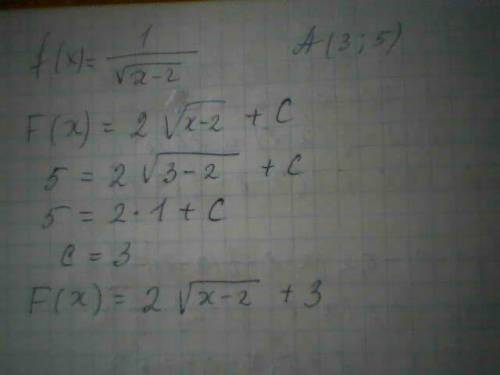 f(x) = 1/√(x-2) A(3; 5)
F(x) = 2√(x-2) + C
5 = 2√(3-2) + C
5 = 2·1 + C
C = 3
F(x) = 2√(x-2) + 3